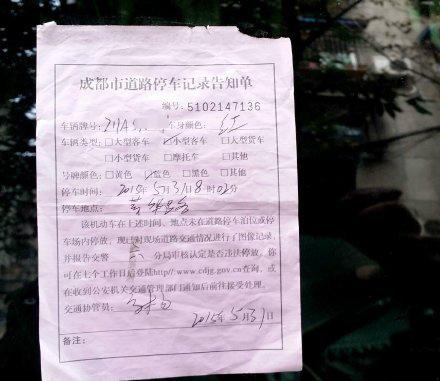 成都市道路停车记录告知单
编号:5102147136
车辆牌号: 川A 车身颜色: 红
车辆类型:□大型客车 ☑小型客车 □大型货车
□小型货车 □摩托车 □其他
号牌颜色:□黄色 ☑蓝色 □黑色 □其他
停车时间: 2015年5月31日8时02分
停车地点:
该机动车在上述时间、地点未在道路停车泊位或停
车场内停放,现已对现场道路交通情况进行了图像记录,
并报告交警 六 分局审核认定是否违法停放。你
可在七个工作日后登陆http//:www.cdjg.gov.cn查询,或
在收到公安机关交通管理部门通知后前往接受处理。
交通协管员:
2015年5月31日
备注: